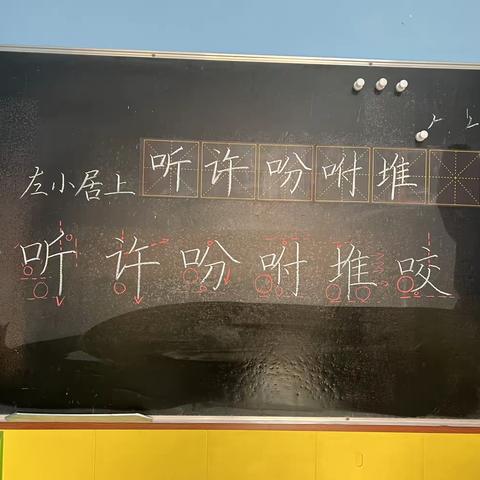 左小居上 听许吩咐堆
听许吩咐堆咬